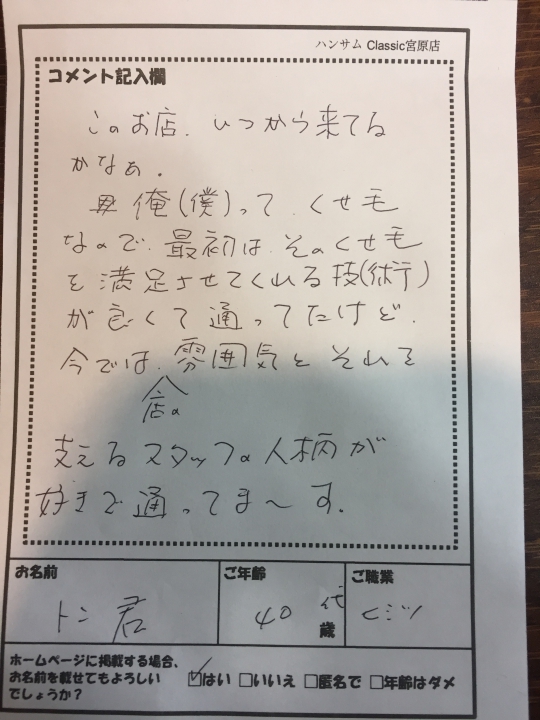 ハンサム Classic宮原店
コメント記入欄
このお店、いつから来てる
かなぁ。
俺(僕)って、くせ毛
なので、最初は、そのくせ毛
を満足させてくれる技(術)
が良くて通ってたけど、
今では、雰囲気とそれを
店の
支えるスタッフの人柄が
好きで通ってま〜す。
お名前 ご年齢 ご職業
トン君 40代 歳 ヒミツ
ホームページに掲載する場合、
お名前を載せてもよろしい ☑はい □いいえ □匿名で □年齢はダメ
でしょうか?